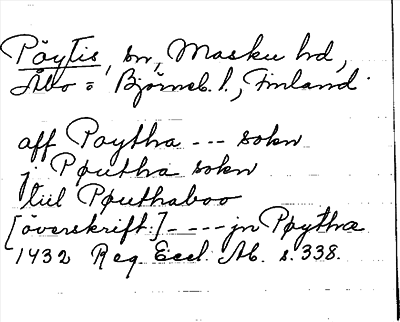 Pöytis, sn, Masku hd,
Åbo = Björneb. l., Finland
aff Poytha --- sokn
j Pøutha sokn
til Pøuthaboo
[överskrift:] ---- jn Pøythæ
1432 Reg. Eccl. Ab. s. 338.